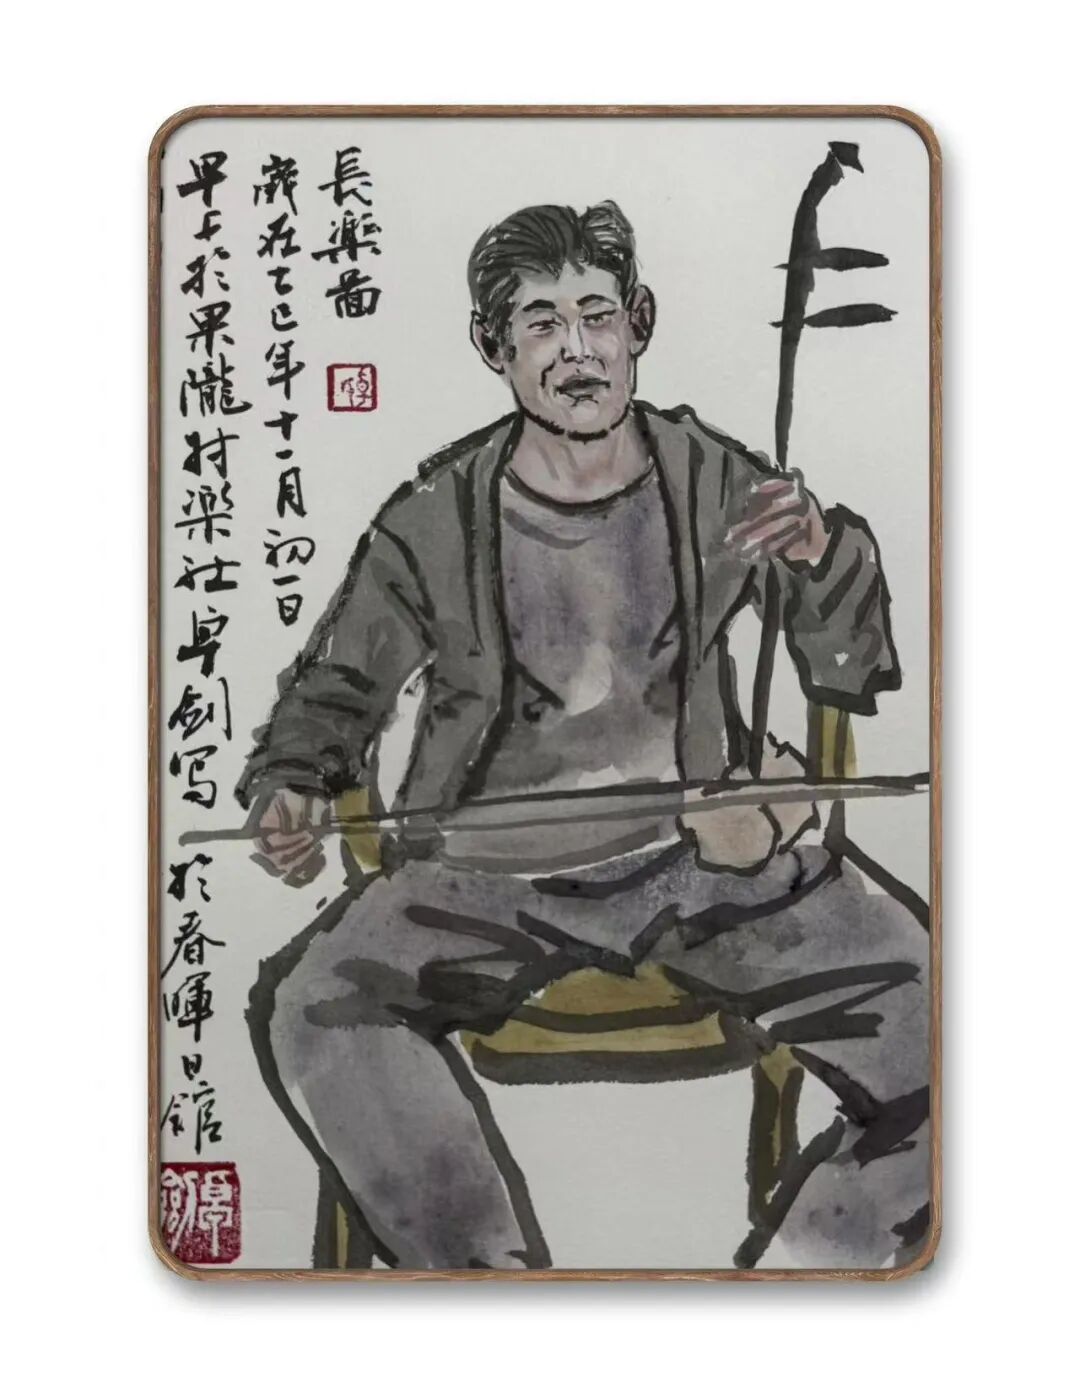 長樂圖
歲在乙巳年十一月初一日
早上於果隴村樂社卓剑写於春暉日館